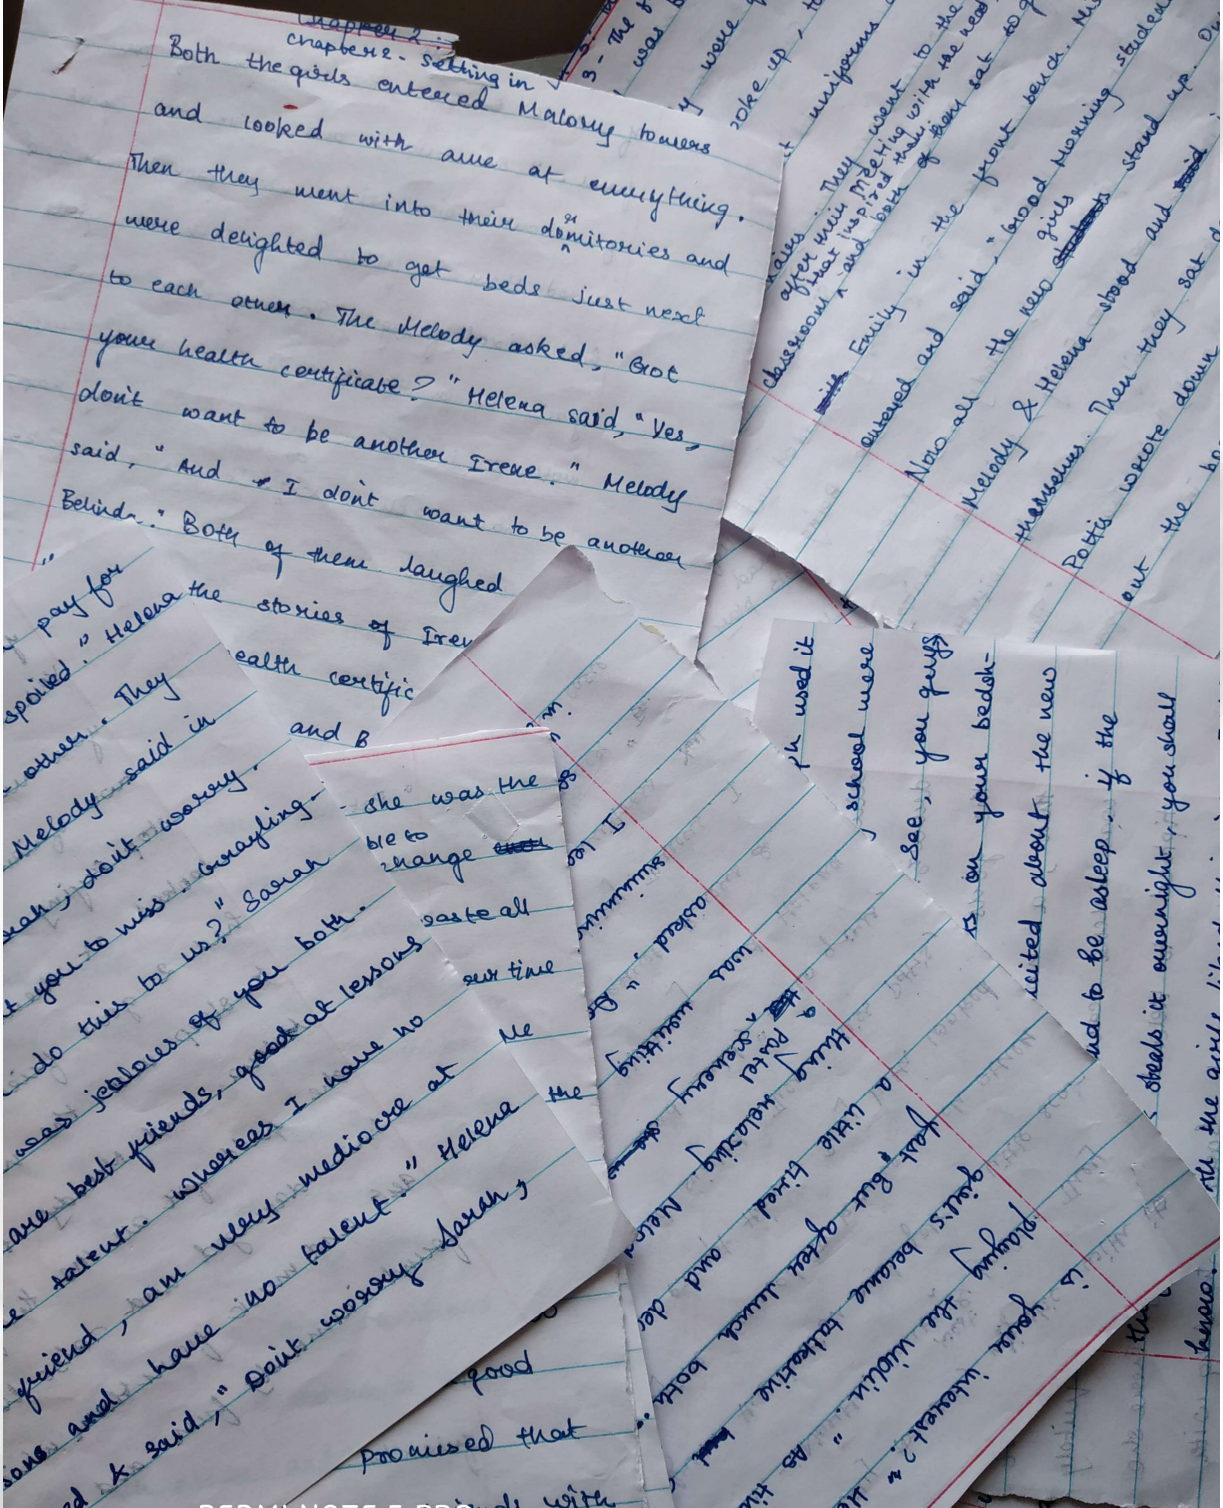 Chapter 2 :
Chapter 2 - Setting in
Both the girls entered Malory towers
and looked with awe at everything.
Then they went into their dormitories and
were delighted to get beds just next
to each other. The Melody asked, "Got
your health certificate?" Helena said, "Yes,
don't want to be another Irene." Melody
said, "And I don't want to be another
Belinda." Both of them laughed
the stories of Iren
ealth certific
and B
3 - The
was
y were
woke up,
uniforms
hairs. They went to the
after their meeting with the
that inspired them
classroom and both of them sat
with Emily in the front bench. Mis
entered and said, "Good Morning student
Now all the new girls stand up.
Melody & Helena stood and said
themselves. Then they sat d
Potts wrote down
out the bo
pay for
spoiled." Helena
other. They
Melody said in
, don't worry.
t you to miss Grayling-
do this to us?" Sarah
was jealous of you both.
are best friends, good at lessons
talent. Whereas I have no
friend, am very mediocre at
sons and have no talent." Helena
ed & said, "Don't worry Sarah,
she was the
ble to
change
waste all
our time
Me
the
good
promised that
with
in
so
I le
swimmin
asked, "
was waiting
a Pastel
scenery
thing relaxing. Melod
a little tired and de
fast, but after lunch both
girl's became talkative
playing the violin." As
is your interest?" He
used it
school were
see, you guys
ts on your bedsh-
cited about the new
nd to be asleep, if the
steals it overnight, you shall
th the girls
know.
REDMI NOTE 5 PRO